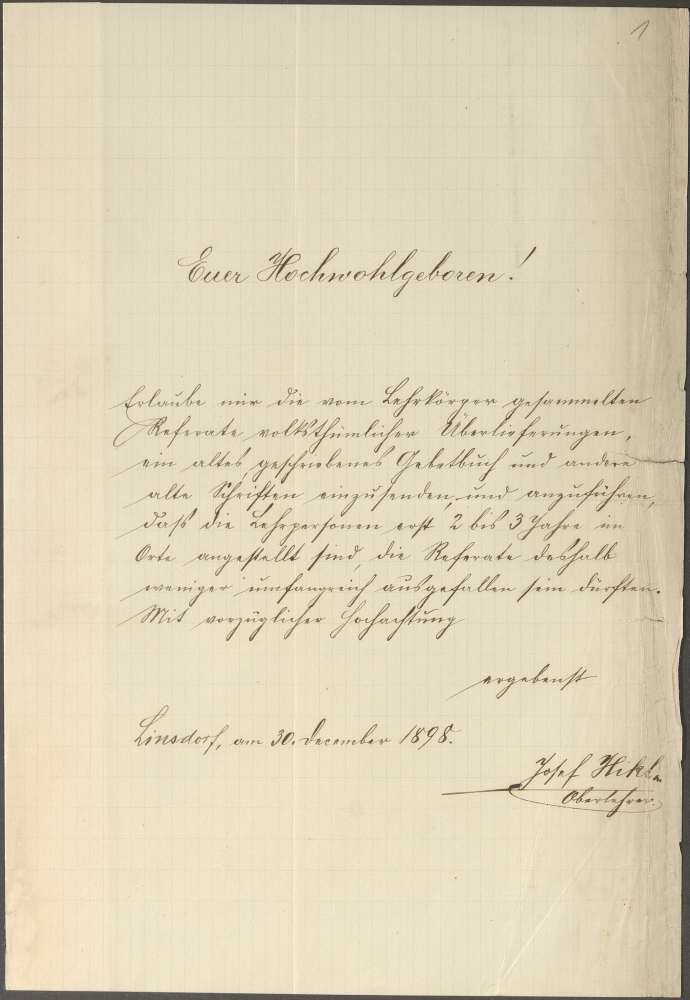 1
Euer Hochwohlgeboren!
Erlaube mir die vom Lehrkörper gesammelten
Referate volksthümlicher Überlieferungen,
ein altes geschriebenes Gebetbuch und andere
alte Schriften einzusenden, und anzuführen,
daß die Lehrpersonen erst 2 bis 3 Jahre im
Orte angestellt sind, die Referate deshalb
weniger umfangreich ausgefallen sein dürften.
Mit vorzüglicher Hochachtung
ergebenst
Linsdorf, am 30. December 1898.
Josef
Oberlehrer.